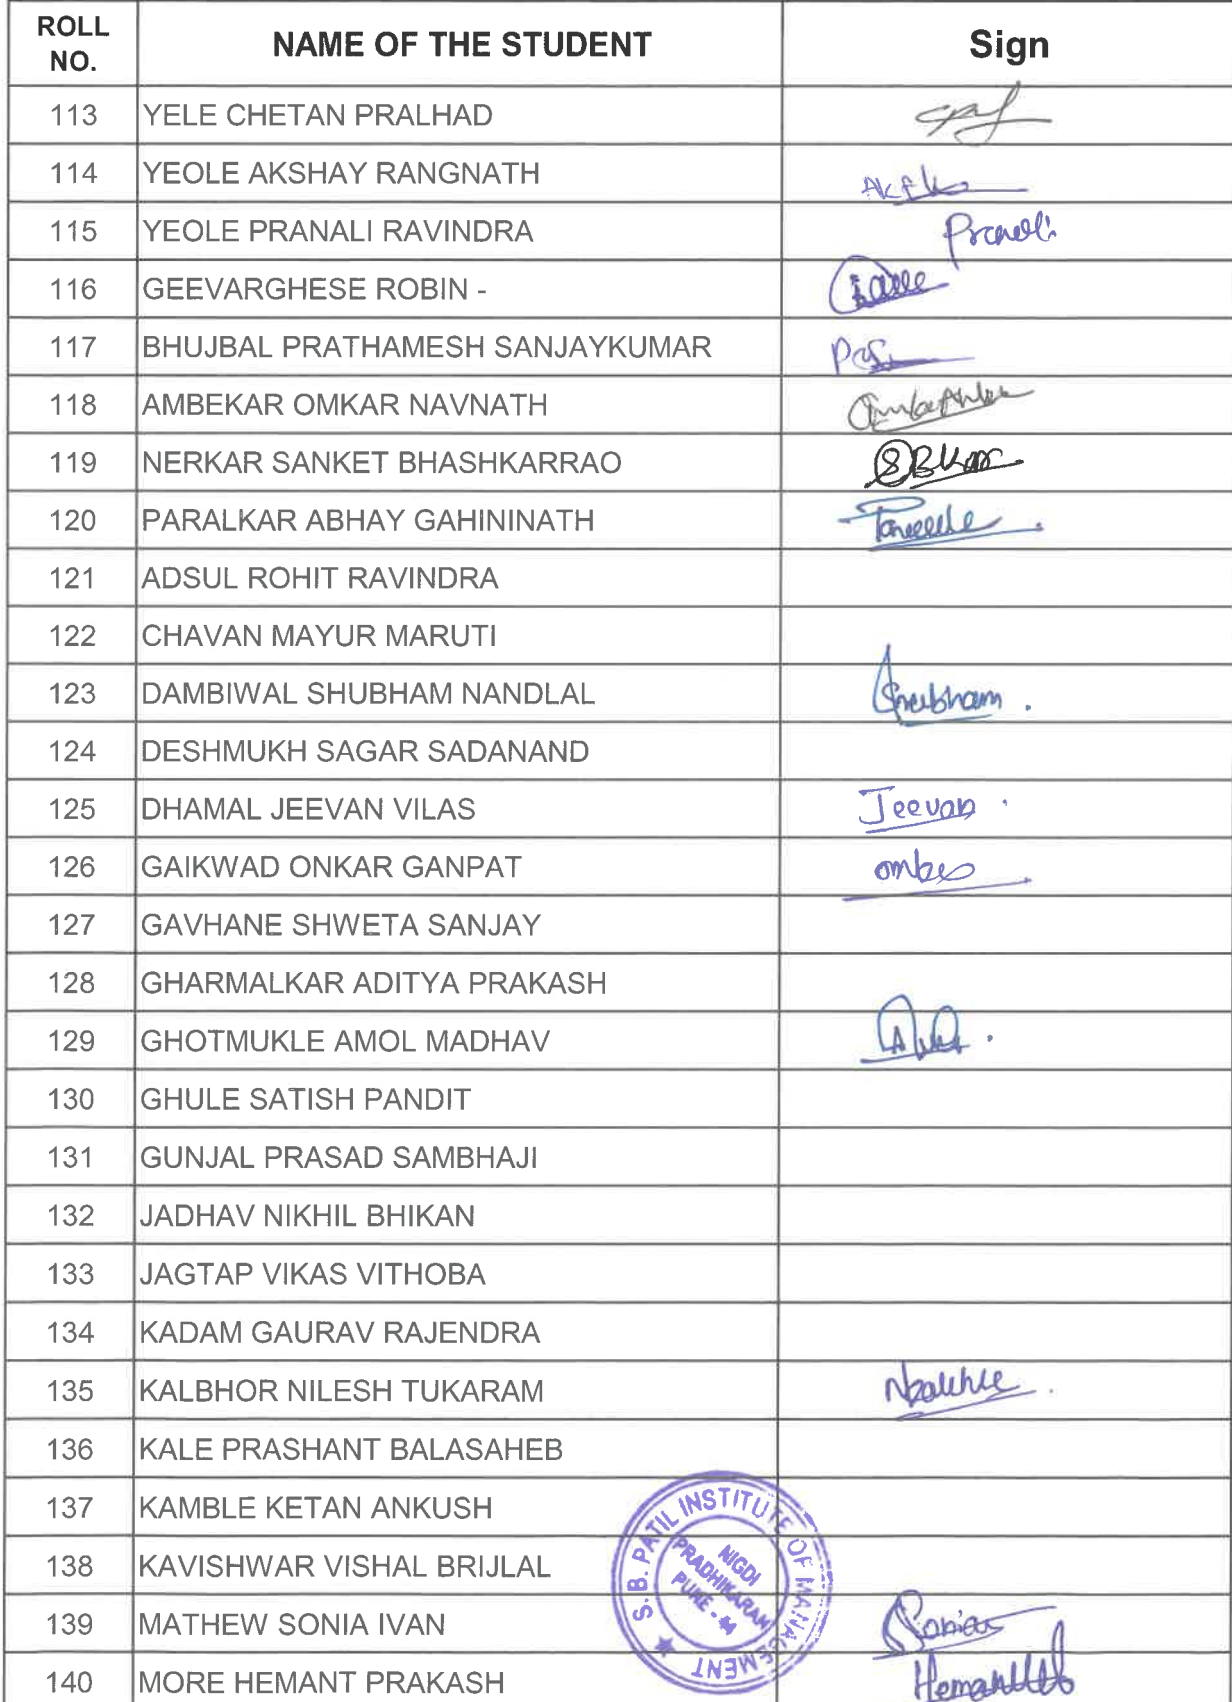 ROLL NO. NAME OF THE STUDENT Sign
113 YELE CHETAN PRALHAD
114 YEOLE AKSHAY RANGNATH
115 YEOLE PRANALI RAVINDRA Pranali
116 GEEVARGHESE ROBIN -
117 BHUJBAL PRATHAMESH SANJAYKUMAR
118 AMBEKAR OMKAR NAVNATH
119 NERKAR SANKET BHASHKARRAO
120 PARALKAR ABHAY GAHININATH
121 ADSUL ROHIT RAVINDRA
122 CHAVAN MAYUR MARUTI
123 DAMBIWAL SHUBHAM NANDLAL Shubham.
124 DESHMUKH SAGAR SADANAND
125 DHAMAL JEEVAN VILAS Jeevan.
126 GAIKWAD ONKAR GANPAT
127 GAVHANE SHWETA SANJAY
128 GHARMALKAR ADITYA PRAKASH
129 GHOTMUKLE AMOL MADHAV
130 GHULE SATISH PANDIT
131 GUNJAL PRASAD SAMBHAJI
132 JADHAV NIKHIL BHIKAN
133 JAGTAP VIKAS VITHOBA
134 KADAM GAURAV RAJENDRA
135 KALBHOR NILESH TUKARAM
136 KALE PRASHANT BALASAHEB
137 KAMBLE KETAN ANKUSH
138 KAVISHWAR VISHAL BRIJLAL
139 MATHEW SONIA IVAN
140 MORE HEMANT PRAKASH
S.B. PATIL INSTITUTE OF MANAGEMENT
NIGDI
PRADHIKARAN
PUNE - 44